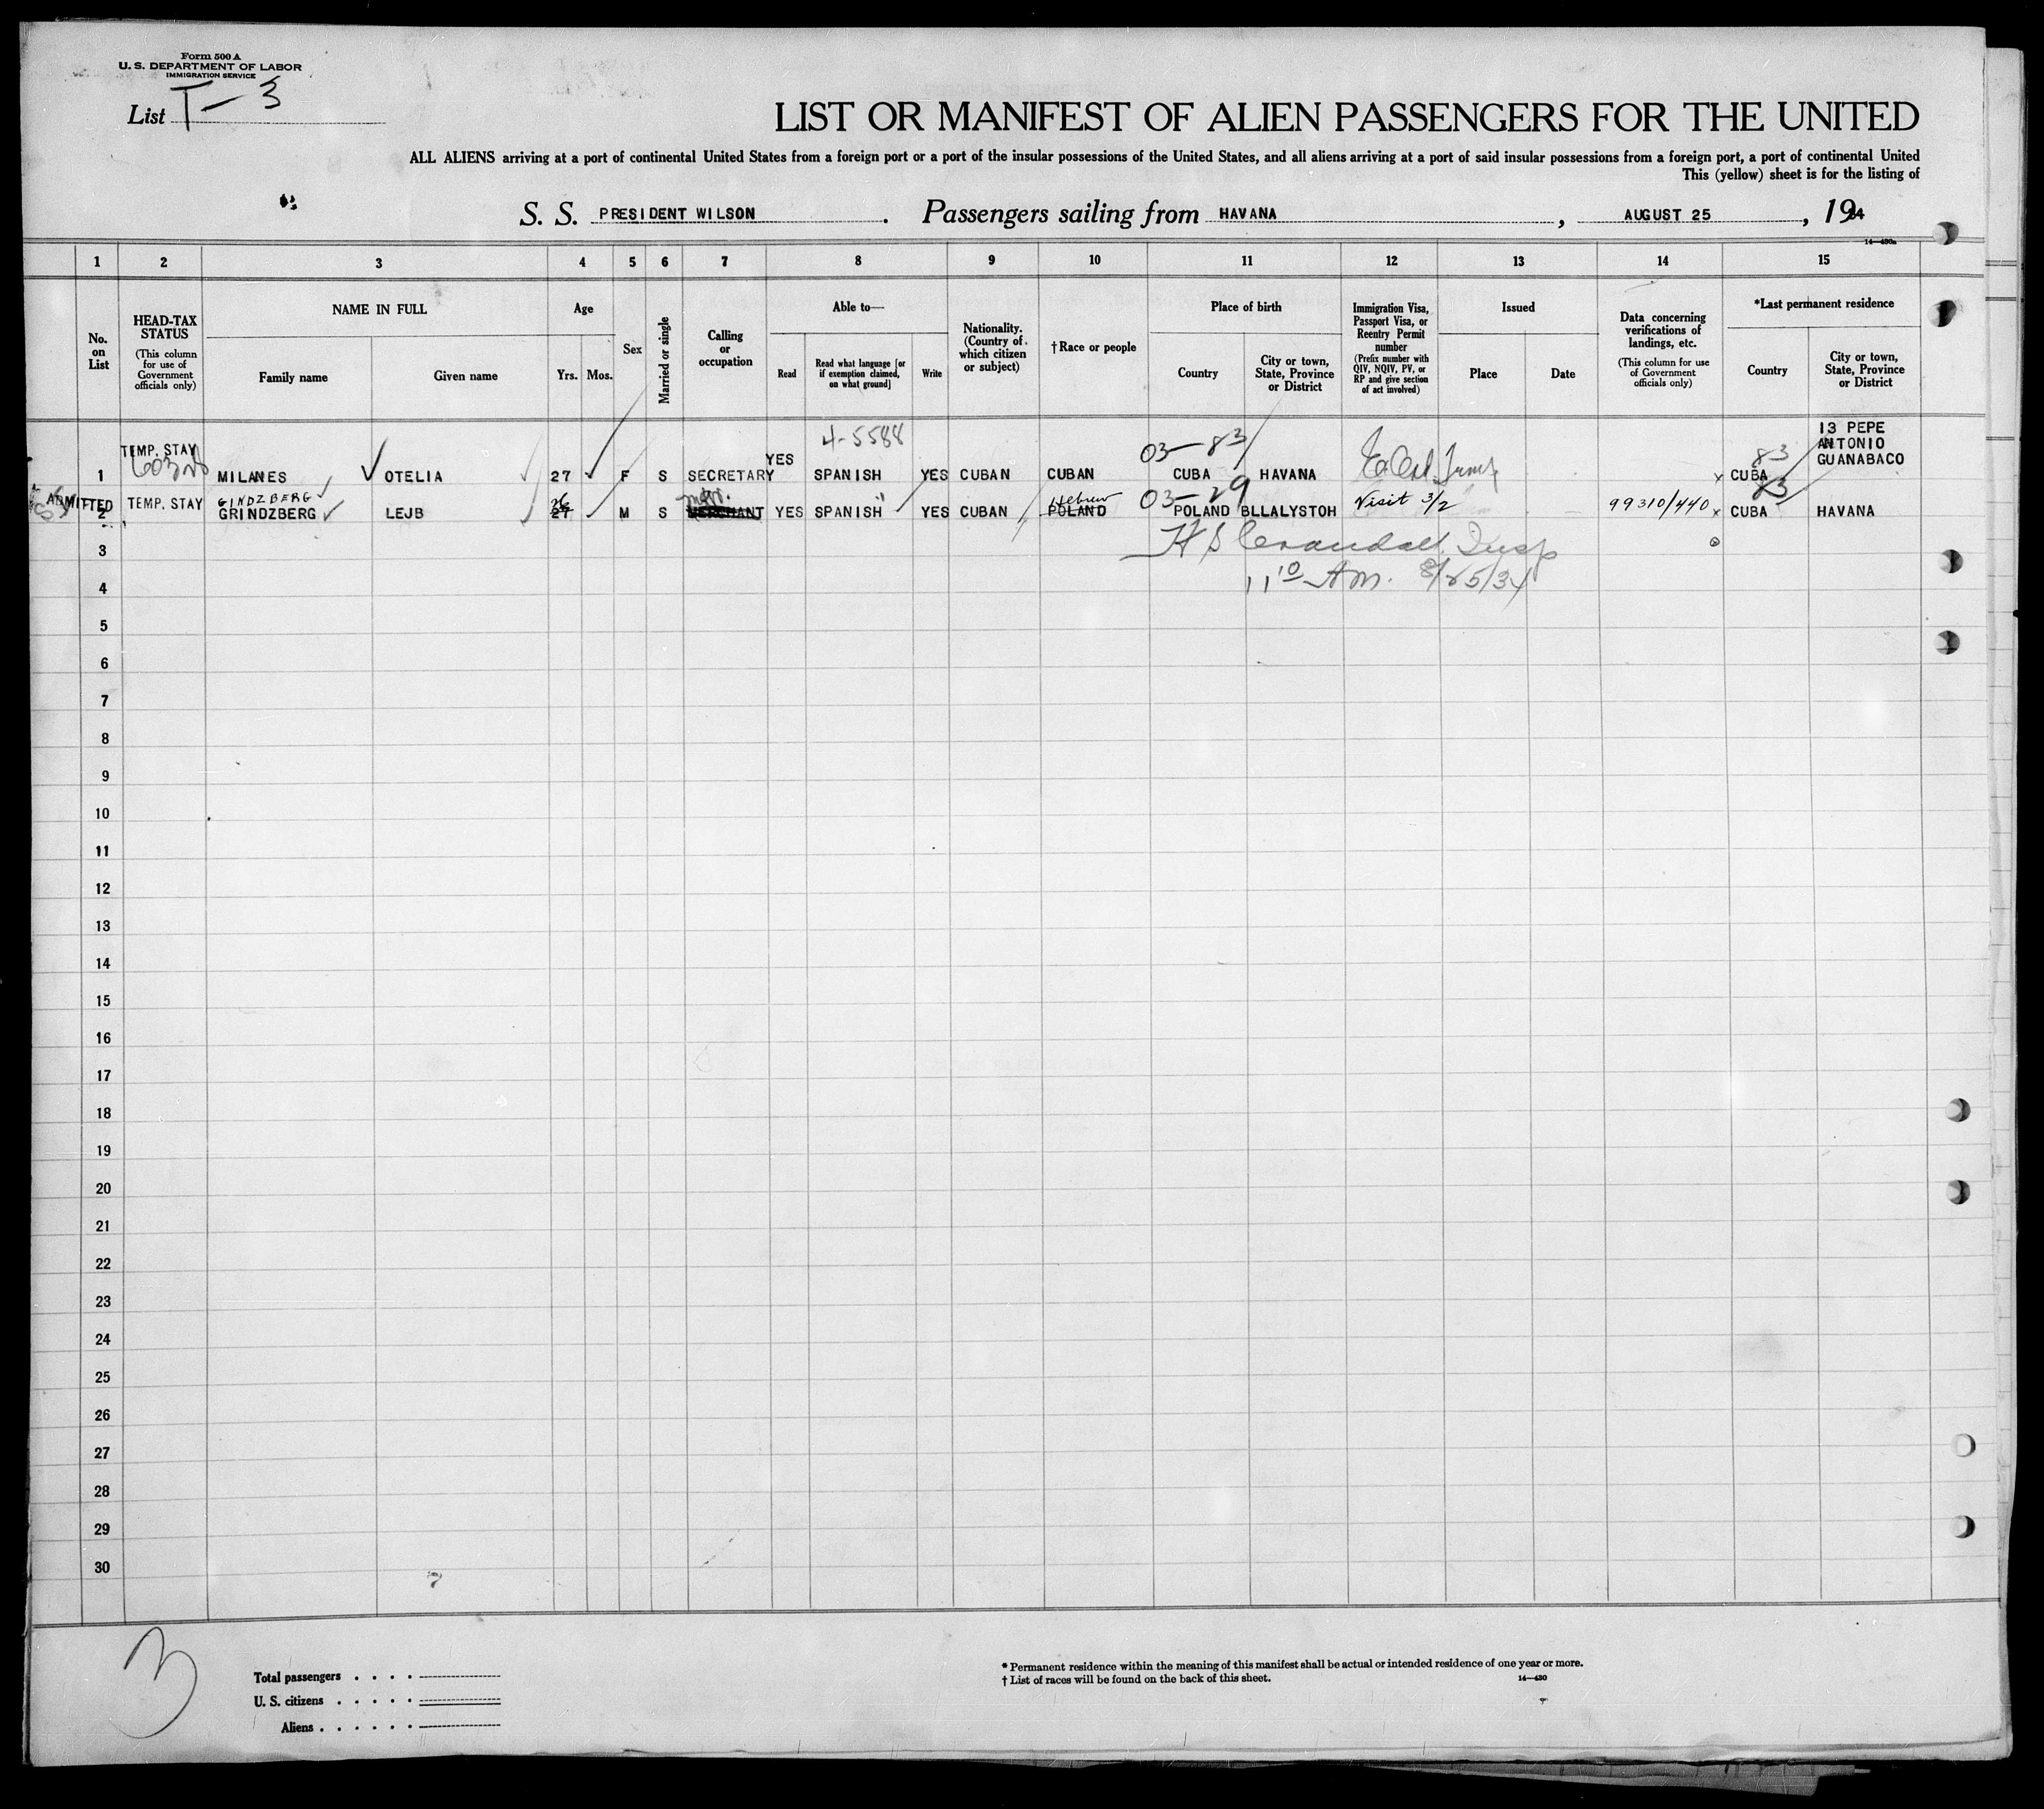 Form 500 A
U. S. DEPARTMENT OF LABOR
IMMIGRATION SERVICE
List T-3
LIST OR MANIFEST OF ALIEN PASSENGERS FOR THE UNITED
ALL ALIENS arriving at a port of continental United States from a foreign port or a port of the insular possessions of the United States, and all aliens arriving at a port of said insular possessions from a foreign port, a port of continental United
This (yellow) sheet is for the listing of
S. S. PRESIDENT WILSON . Passengers sailing from HAVANA , AUGUST 25 , 1934
14—430a
1 2 3 4 5 6 7 8 9 10 11 12 13 14 15
No. on List
HEAD-TAX STATUS
(This column for use of Government officials only)
NAME IN FULL
Family name
Given name
Age
Yrs. Mos.
Sex
Married or single
Calling or occupation
Able to—
Read
Read what language [or if exemption claimed, on what ground]
Write
Nationality. (Country of which citizen or subject)
†Race or people
Place of birth
Country
City or town, State, Province or District
Immigration Visa, Passport Visa, or Reentry Permit number
(Prefix number with QIV, NQIV, PV, or RP and give section of act involved)
Issued
Place
Date
Data concerning verifications of landings, etc.
(This column for use of Government officials only)
*Last permanent residence
Country
City or town, State, Province or District
4-5588
03-83
83
13 PEPE ANTONIO GUANABACO
1 TEMP. STAY MILANES OTELIA 27 F S SECRETARY YES SPANISH YES CUBAN CUBAN CUBA HAVANA CUBA
GINDZBERG
Hebrew
03-29
83
ADMITTED 2 TEMP. STAY GRINDZBERG LEJB 26 27 M S MERCHANT YES SPANISH YES CUBAN POLAND POLAND BLLALYSTOH Visit 3/2 99310/440 CUBA HAVANA
3 H S Crandall Insp
4 11 10 AM. 8/25/34
5
6
7
8
9
10
11
12
13
14
15
16
17
18
19
20
21
22
23
24
25
26
27
28
29
30
3
Total passengers . . . .
U. S. citizens . . . . .
Aliens . . . . . .
* Permanent residence within the meaning of this manifest shall be actual or intended residence of one year or more.
† List of races will be found on the back of this sheet.
14—430